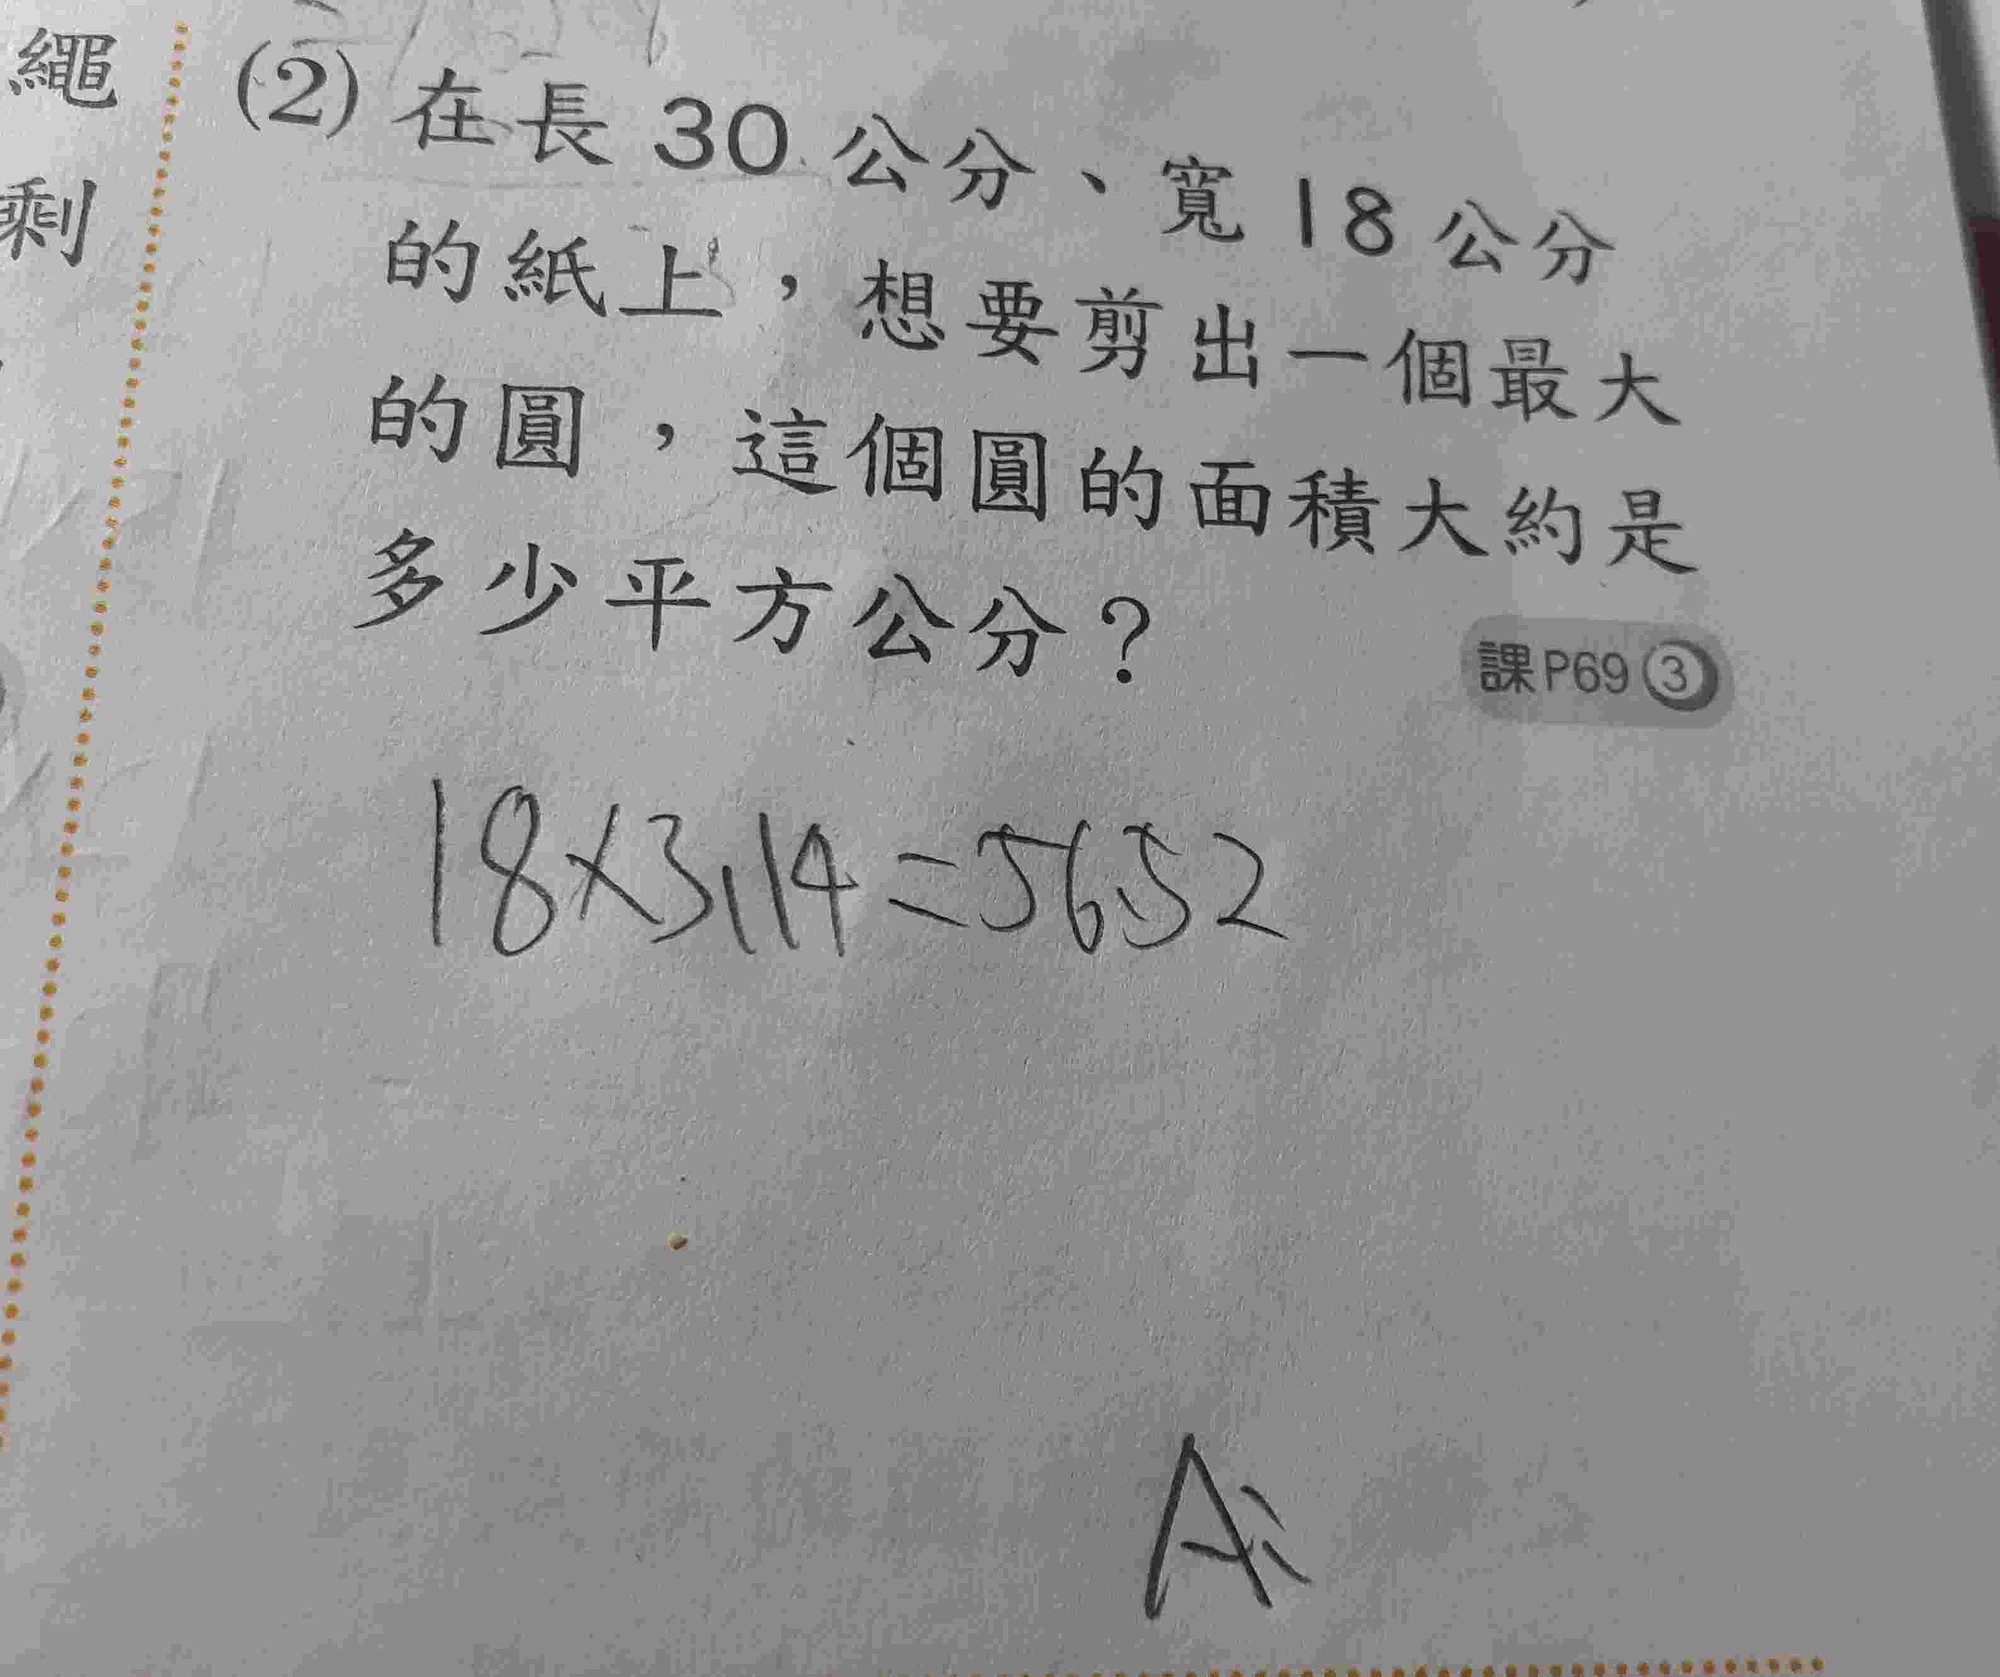 繩
剩
(2) 在長 30 公分、寬 18 公分
的紙上，想要剪出一個最大
的圓，這個圓的面積大約是
多少平方公分？
課P69③
18×3.14=56.52
A: